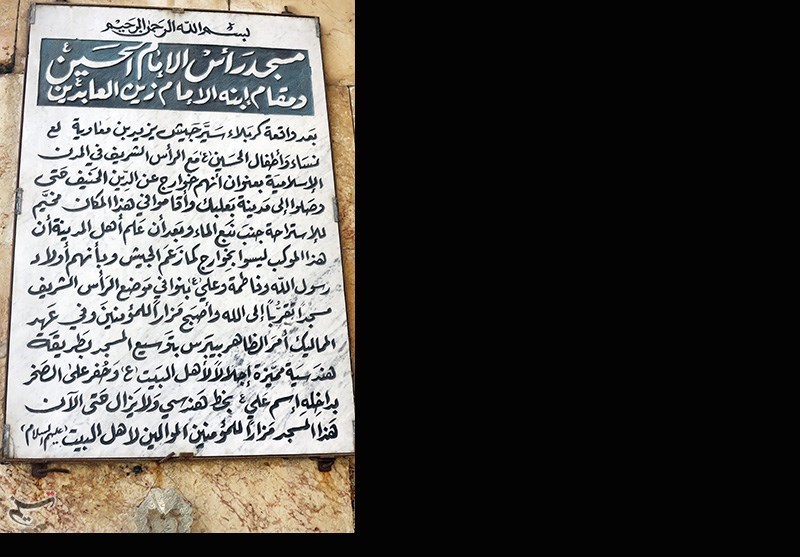 بسم الله الرحمن الرحيم
مسجد رأس الإمام الحسين ع
ومقام إبنه الإمام زين العابدين ع
بعد واقعة كربلاء سيّر جيش يزيد بن معاوية لع
نساء وأطفال الحسين (ع) مع الرأس الشريف في المدن
الإسلامية بعنوان أنهم خوارج عن الدين الحنيف حتى
وصلوا إلى مدينة بعلبك وأقاموا في هذا المكان مخيّم
للإستراحة جنب نبع الماء وبعد أن علم أهل المدينة أن
هذا الموكب ليسوا بخوارج كما زعم الجيش وبأنهم أولاد
رسول الله وفاطمة وعلي (ع) بنوا في موضع الرأس الشريف
مسجداً تقرّباً إلى الله وأصبح مزاراً للمؤمنين وفي عهد
المماليك أمر الظاهر بيبرس بتوسيع المسجد بطريقة
هندسية مميزة إجلالاً لأهل البيت (ع) وحفر على الصخر
بداخله إسم علي ع بخط هندسي ولا يزال حتى الآن
هذا المسجد مزاراً للمؤمنين الموالين لأهل البيت (عليهم السلام)
تسنیم